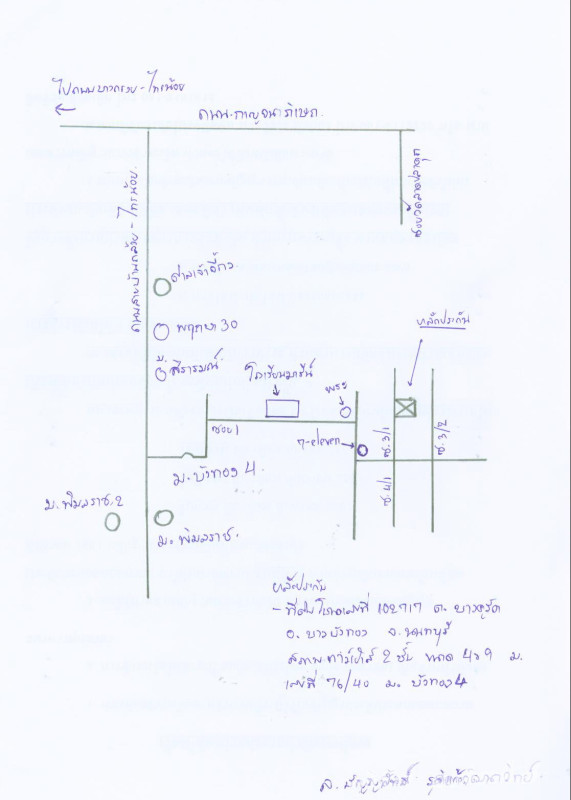 ไปถนนบางกรวย - ไทรน้อย
ถนน กาญจนาภิเษก.
ถนนสายบ้านกล้วย - ไทรน้อย.
ซอยวัดลาดปลาดุก
ศาลเจ้า
พฤกษา 30
ม.
หลักประกัน
โรงเรียน
พระ
ซอย 1
7-eleven
ซ. 3/1
ซ. 3/2
ซ. 4/1
ม. บัวทอง 4.
ม. พิมลราช. 2
ม. พิมลราช.
หลักประกัน
- ที่ดินโฉนดเลขที่ 102717 ต. บางคูรัด
อ. บางบัวทอง จ. นนทบุรี
สภาพ ทาวน์เฮ้าส์ 2 ชั้น ขนาด 4x9 ม.
เลขที่ 76/40 ม. บัวทอง 4